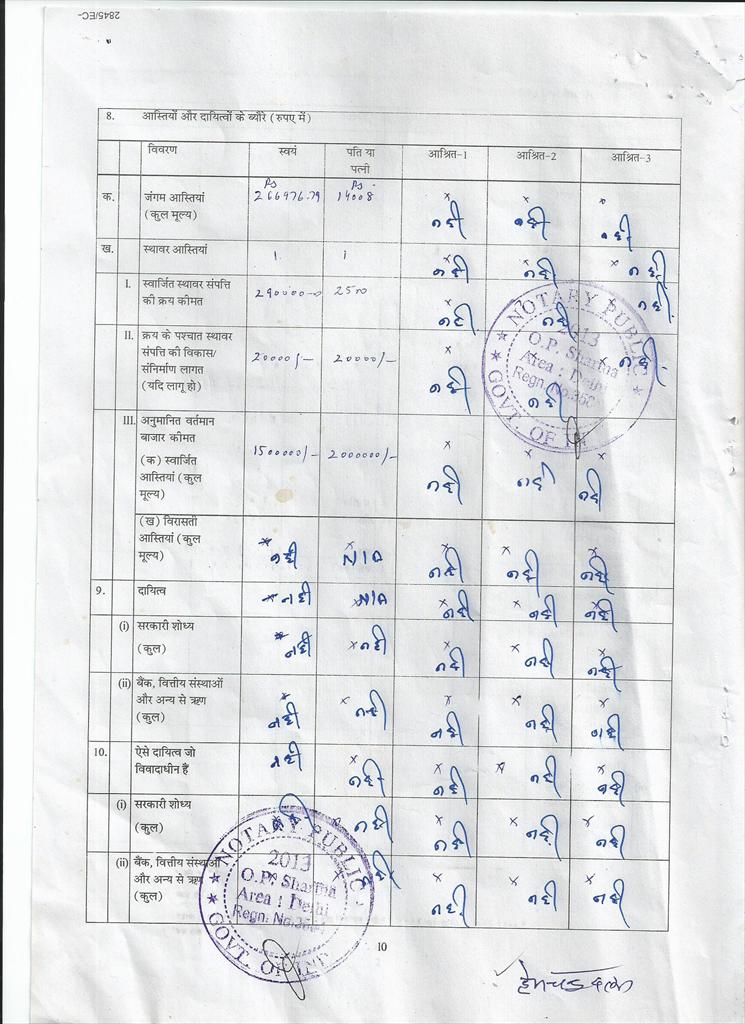 2845/EC-
8. आस्तियों और दायित्वों के ब्यौरे (रुपए में)
विवरण स्वयं पति या पत्नी आश्रित-1 आश्रित-2 आश्रित-3
क. जंगम आस्तियां (कुल मूल्य) Rs 266976.79 Rs 14008 x नही x नही x नही
ख. स्थावर आस्तियां x नही x नही x नही
I. स्वार्जित स्थावर संपत्ति की क्रय कीमत 290000-0 2500 x नही नही नही
II. क्रय के पश्चात स्थावर संपत्ति की विकास/संनिर्माण लागत (यदि लागू हो) 20000/- 20000/- x नही x नही x नही
III. अनुमानित वर्तमान बाजार कीमत
(क) स्वार्जित आस्तियां (कुल मूल्य) 1500000/- 2000000/- x नही x नही x नही
(ख) विरासती आस्तियां (कुल मूल्य) x नही x N/A x नही x नही x नही
9. दायित्व x नही x N/A x नही x नही x नही
(i) सरकारी शोध्य (कुल) x नही x नही x नही x नही x नही
(ii) बैंक, वित्तीय संस्थाओं और अन्य से ऋण (कुल) x नही x नही x नही x नही x नही
10. ऐसे दायित्व जो विवादाधीन हैं नही x नही x नही x नही x नही
(i) सरकारी शोध्य (कुल) नही x नही x नही x नही
(ii) बैंक, वित्तीय संस्थाओं और अन्य से ऋण (कुल) x नही x नही x नही x नही
NOTARY PUBLIC
2013
O.P. Sharma
Area : Delhi
Regn. No.
GOVT. OF
NOTARY PUBLIC
2013
O.P. Sharma
Area : Delhi
Regn. No.
GOVT. OF
10